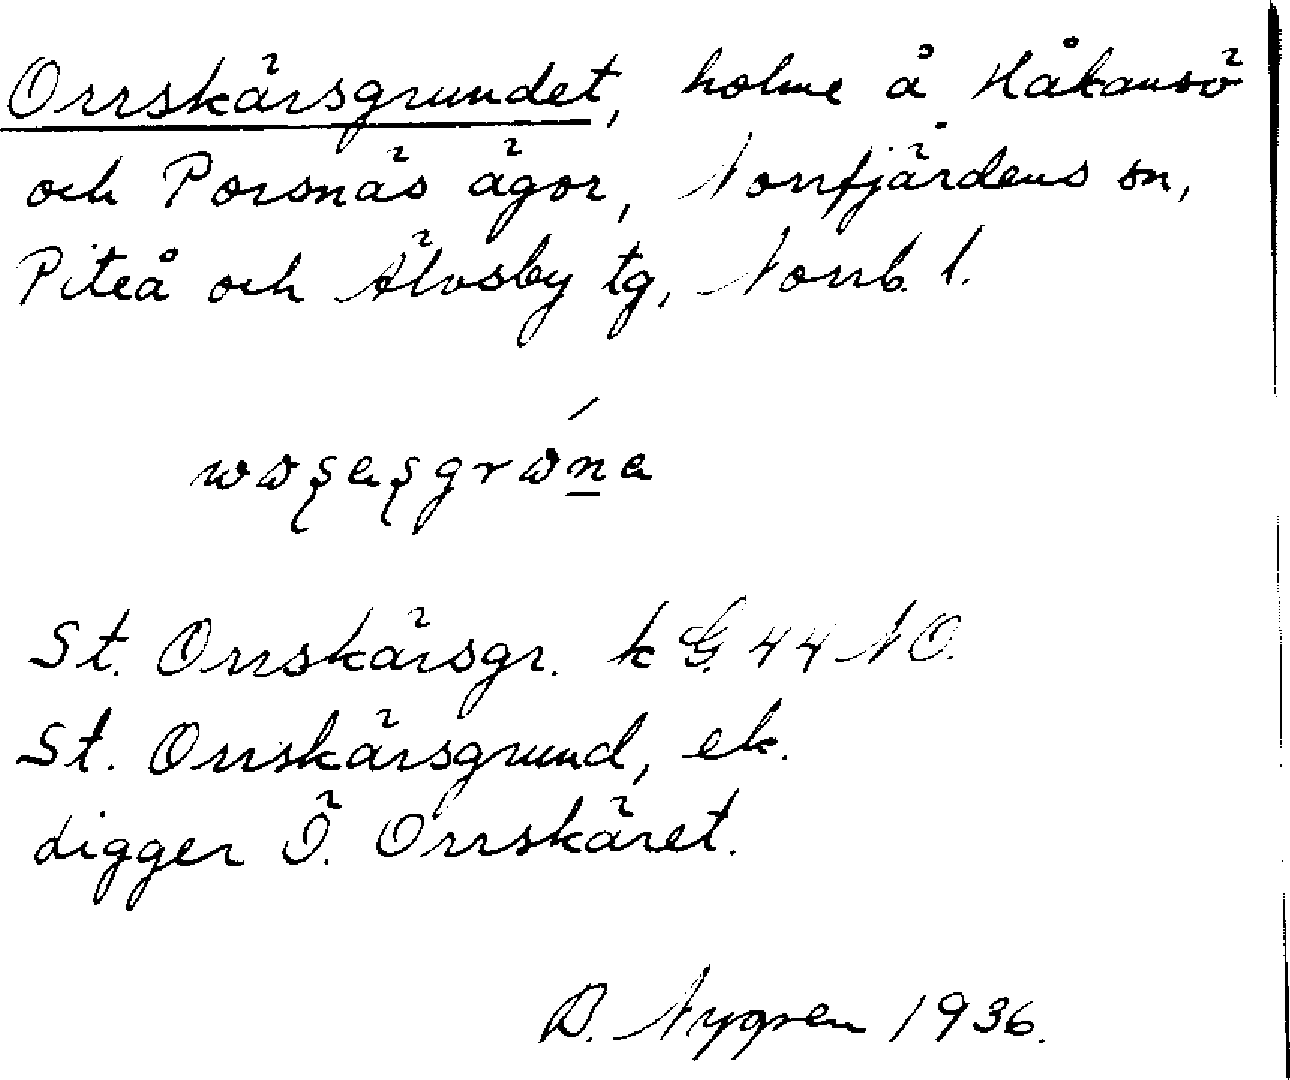 Orrskärsgrundet, holme å Håkansö
och Porsnäs ägor, Norrfjärdens sn,
Piteå och Älvsby tg, Norrb. l.
St. Orrskärsgr. k G. 44 NO.
St. Orrskärsgrund, ek.
Ligger Ö. Orrskäret.
B. Nygren 1936.